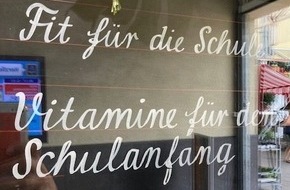 Fit für die Schule
Vitamine für den
Schulanfang